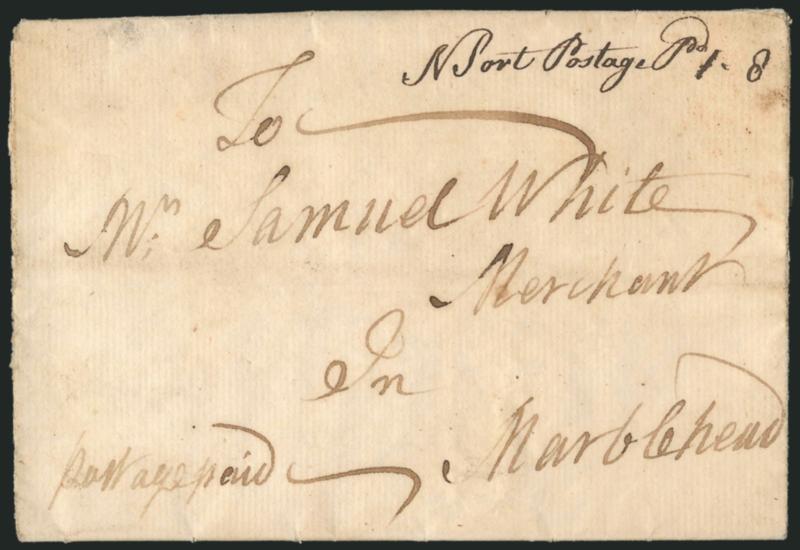 N Port Postage Pd 1.8
To
Mr. Samuel White
Merchant
In
Marblehead
postage paid